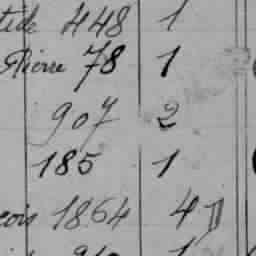 tide 448 1
Pierre 78 1
907 2
185 1
cois 1864 4